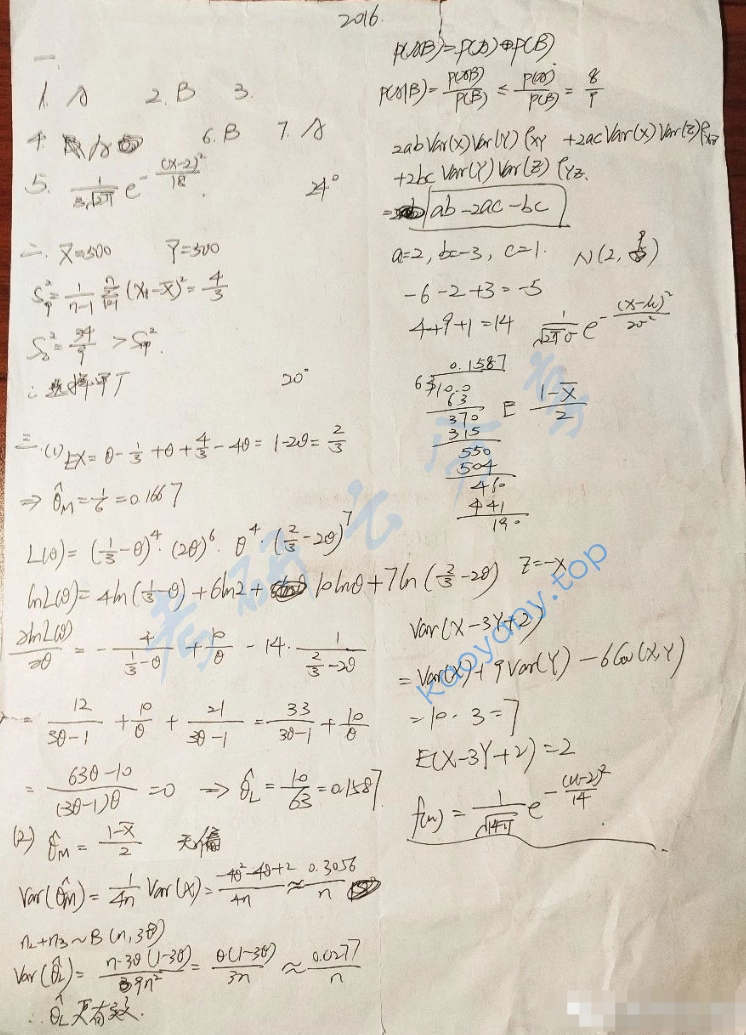 2016.
一
1. A 2. B 3.
4. A 6. B 7. A
5. 1/(3√(2π)) e^(-(x-2)²/18). 24°
二. X̄=500 Ȳ=500
S₁² = 1/(n-1) Σ(i=1..n) (Xᵢ-X̄)² = 4/3
S₂² = 24/9 > S甲².
∴ 选择甲厂 20°
三. (1) EX = θ - 1/3 + θ + 4/3 - 4θ = 1-2θ = 2/3
⇒ θ̂_M = 1/6 = 0.1667
L(θ) = (1/3-θ)⁴·(2θ)⁶·θ⁴·(2/3-2θ)⁷
lnL(θ) = 4ln(1/3-θ) + 6ln2 + 10lnθ + 7ln(2/3-2θ)
∂lnL(θ)/∂θ = -4/(1/3-θ) + 10/θ - 14·1/(2/3-2θ)
= 12/(3θ-1) + 10/θ + 21/(3θ-1) = 33/(3θ-1) + 10/θ
= (63θ-10)/((3θ-1)θ) = 0 ⇒ θ̂_L = 10/63 = 0.1587
(2) θ̂_M = (1-X̄)/2 无偏
Var(θ̂_M) = 1/(4n) Var(X) = (-4θ²-4θ+2)/(4n) ≈ 0.3056/n
n₂+n₃ ~ B(n, 3θ)
Var(θ̂_L) = n·3θ(1-3θ)/(9n²) = θ(1-3θ)/(3n) ≈ 0.0277/n
∴ θ̂_L 更有效.
P(AB) = P(A) P(B)
P(A|B) = P(AB)/P(B) ≤ P(A)/P(B) = 8/9
2ab Var(X)Var(Y) ρ_XY + 2ac Var(X)Var(Z) ρ_XZ
+ 2bc Var(Y)Var(Z) ρ_YZ.
= ab - 2ac - bc
a=2, b=-3, c=1. N(2, 9)
-6-2+3=-5
4+9+1=14 1/(√(2π)σ) e^(-(x-μ)²/2σ²)
0.1587
63 10.0
63
370 E (1-X̄)/2
315
550
504
460
441
190
Z=-X
Var(X-3Y+2)
= Var(X) + 9Var(Y) - 6Cov(X,Y)
= 10-3=7
E(X-3Y+2)=2
f(u) = 1/√(14π) e^(-(u-2)²/14)
考研云库
kaoyany.top